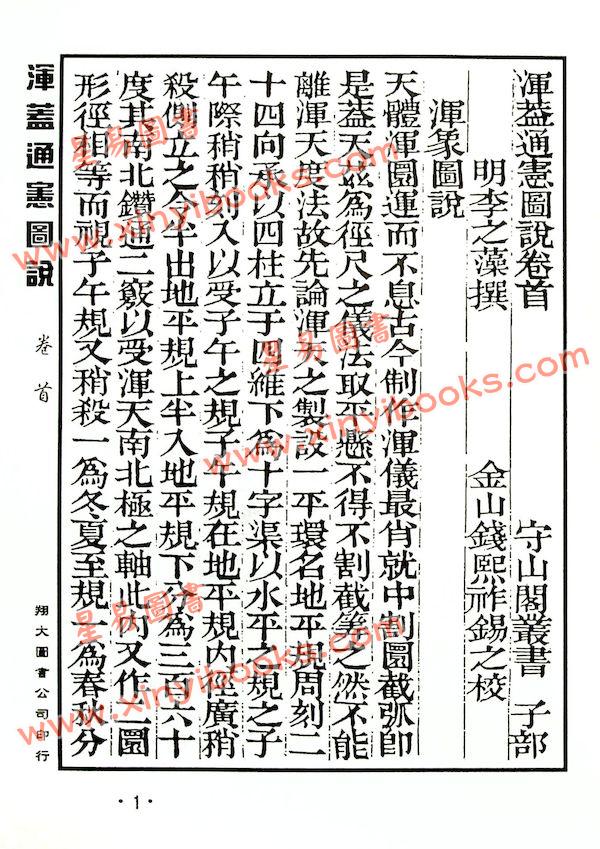 渾蓋通憲圖說卷首 守山閣叢書 子部
明李之藻撰 金山錢熙祚錫之校
渾象圖說
天體渾圜運而不息古今制作渾儀最肖就中割圜截弧即
是蓋天或為徑尺之儀法取平懸不得不割截等之然不能
離渾天度法故先論渾天之製設一平環名地平規周刻二
十四向承以四柱立于四維下為十字渠以水平之規之子
午際稍稍刓入以受子午之規子午規在地平規內徑廣稍
殺側立之令半出地平規上半入地平規下分為三百六十
度其南北鑽通二竅以受渾天南北極之軸此內又作二圜
形徑相等而視子午規又稍殺一為冬夏至規一為春秋分
渾蓋通憲圖說 卷首
翔大圖書公司印行
·1·
星易圖書
www.xinyibooks.com
星易圖書
www.xinyibooks.com
星易圖書
www.xinyibooks.com